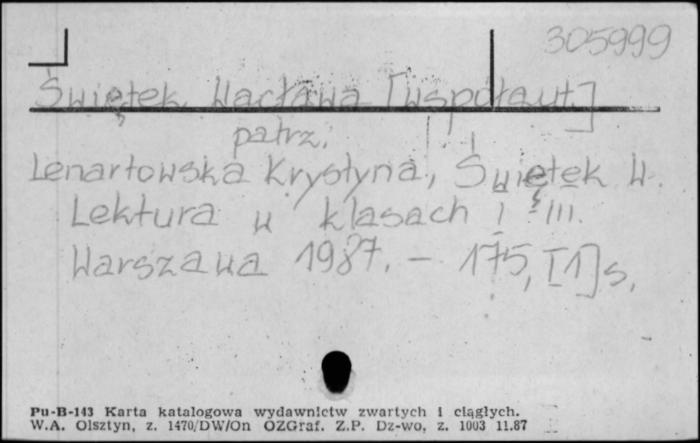 305999
Świętek Wacława [współaut.]
patrz.
Lenartowska Krystyna, Świętek W.
Lektura w klasach I - III.
Warszawa 1987. - 175, [1] s.
Pu-B-143 Karta katalogowa wydawnictw zwartych i ciągłych.
W.A. Olsztyn, z. 1470/DW/On OZGraf. Z.P. Dz-wo, z. 1003 11.87